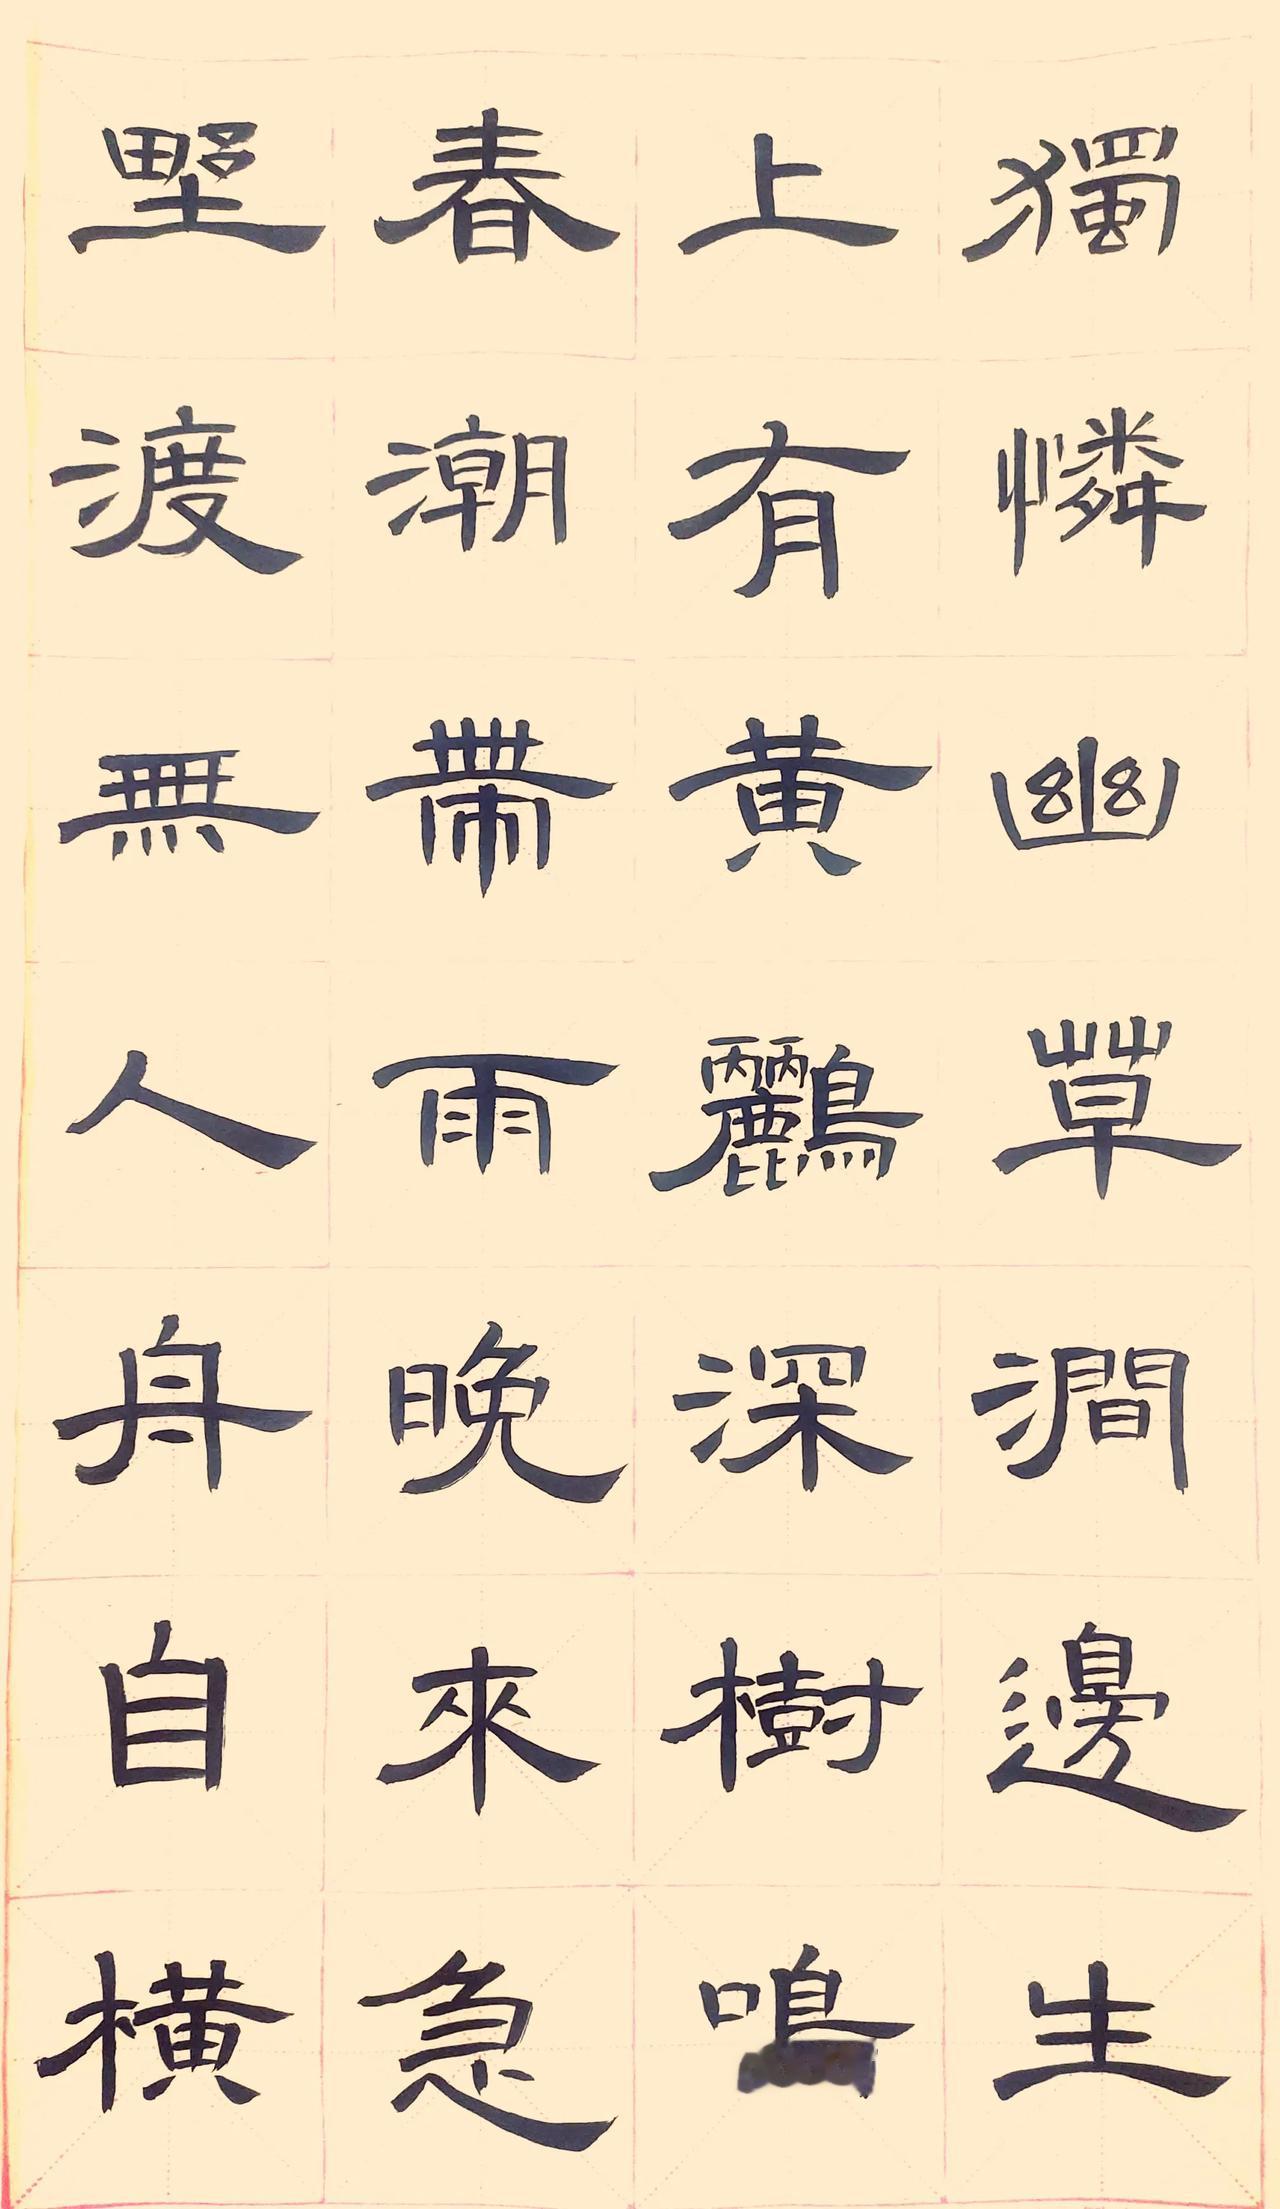 獨憐幽草澗邊生
上有黄鸝深樹鳴
春潮帶雨晚來急
野渡無人舟自横